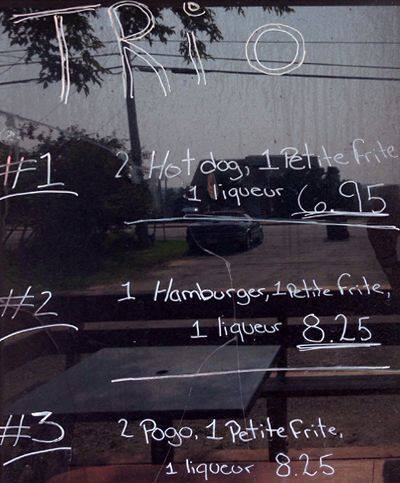 TRiO
#1 2 Hot dog, 1 Petite frite
1 liqueur 6.95
#2 1 Hamburger, 1 Petite frite,
1 liqueur 8.25
#3 2 Pogo, 1 Petite Frite,
1 liqueur 8.25